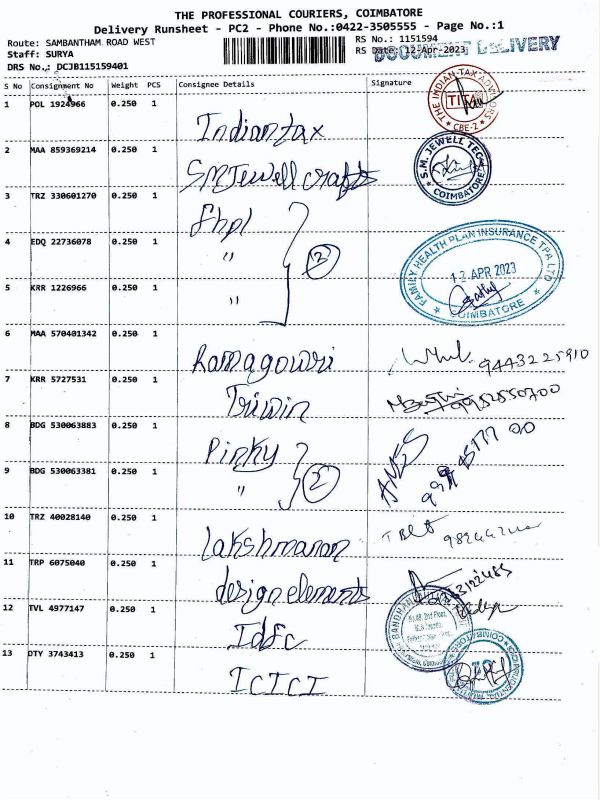 THE PROFESSIONAL COURIERS, COIMBATORE
Delivery Runsheet - PC2 - Phone No.:0422-3505555 - Page No.:1
Route: SAMBANTHAM ROAD WEST
RS No.: 1151594
Staff: SURYA
RS Date: 12-Apr-2023
DOCUMENT DELIVERY
DRS No.: DCJB115159401
S No Consignment No Weight PCS Consignee Details Signature
1 POL 1924966 0.250 1 Indian tax
THE INDIAN TAX CBE-2
2 MAA 859369214 0.250 1 SM Jewell crafts
S.M. JEWELL TEC COIMBATORE
3 TRZ 330601270 0.250 1 fhpl
4 EDQ 22736078 0.250 1 " 2
FAMILY HEALTH PLAN INSURANCE TPA LTD
12 APR 2023
COIMBATORE
5 KRR 1226966 0.250 1 "
6 MAA 570401342 0.250 1 Ramagowri 9443225910
7 KRR 5727531 0.250 1 Triwin
8 BDG 530063883 0.250 1 Pinky
9 BDG 530063381 0.250 1 " 2
10 TRZ 40028140 0.250 1 Lakshmanan
11 TRP 6075040 0.250 1 design elements
12 TVL 4977147 0.250 1 Idfc
13 DTY 3743413 0.250 1 ICICI